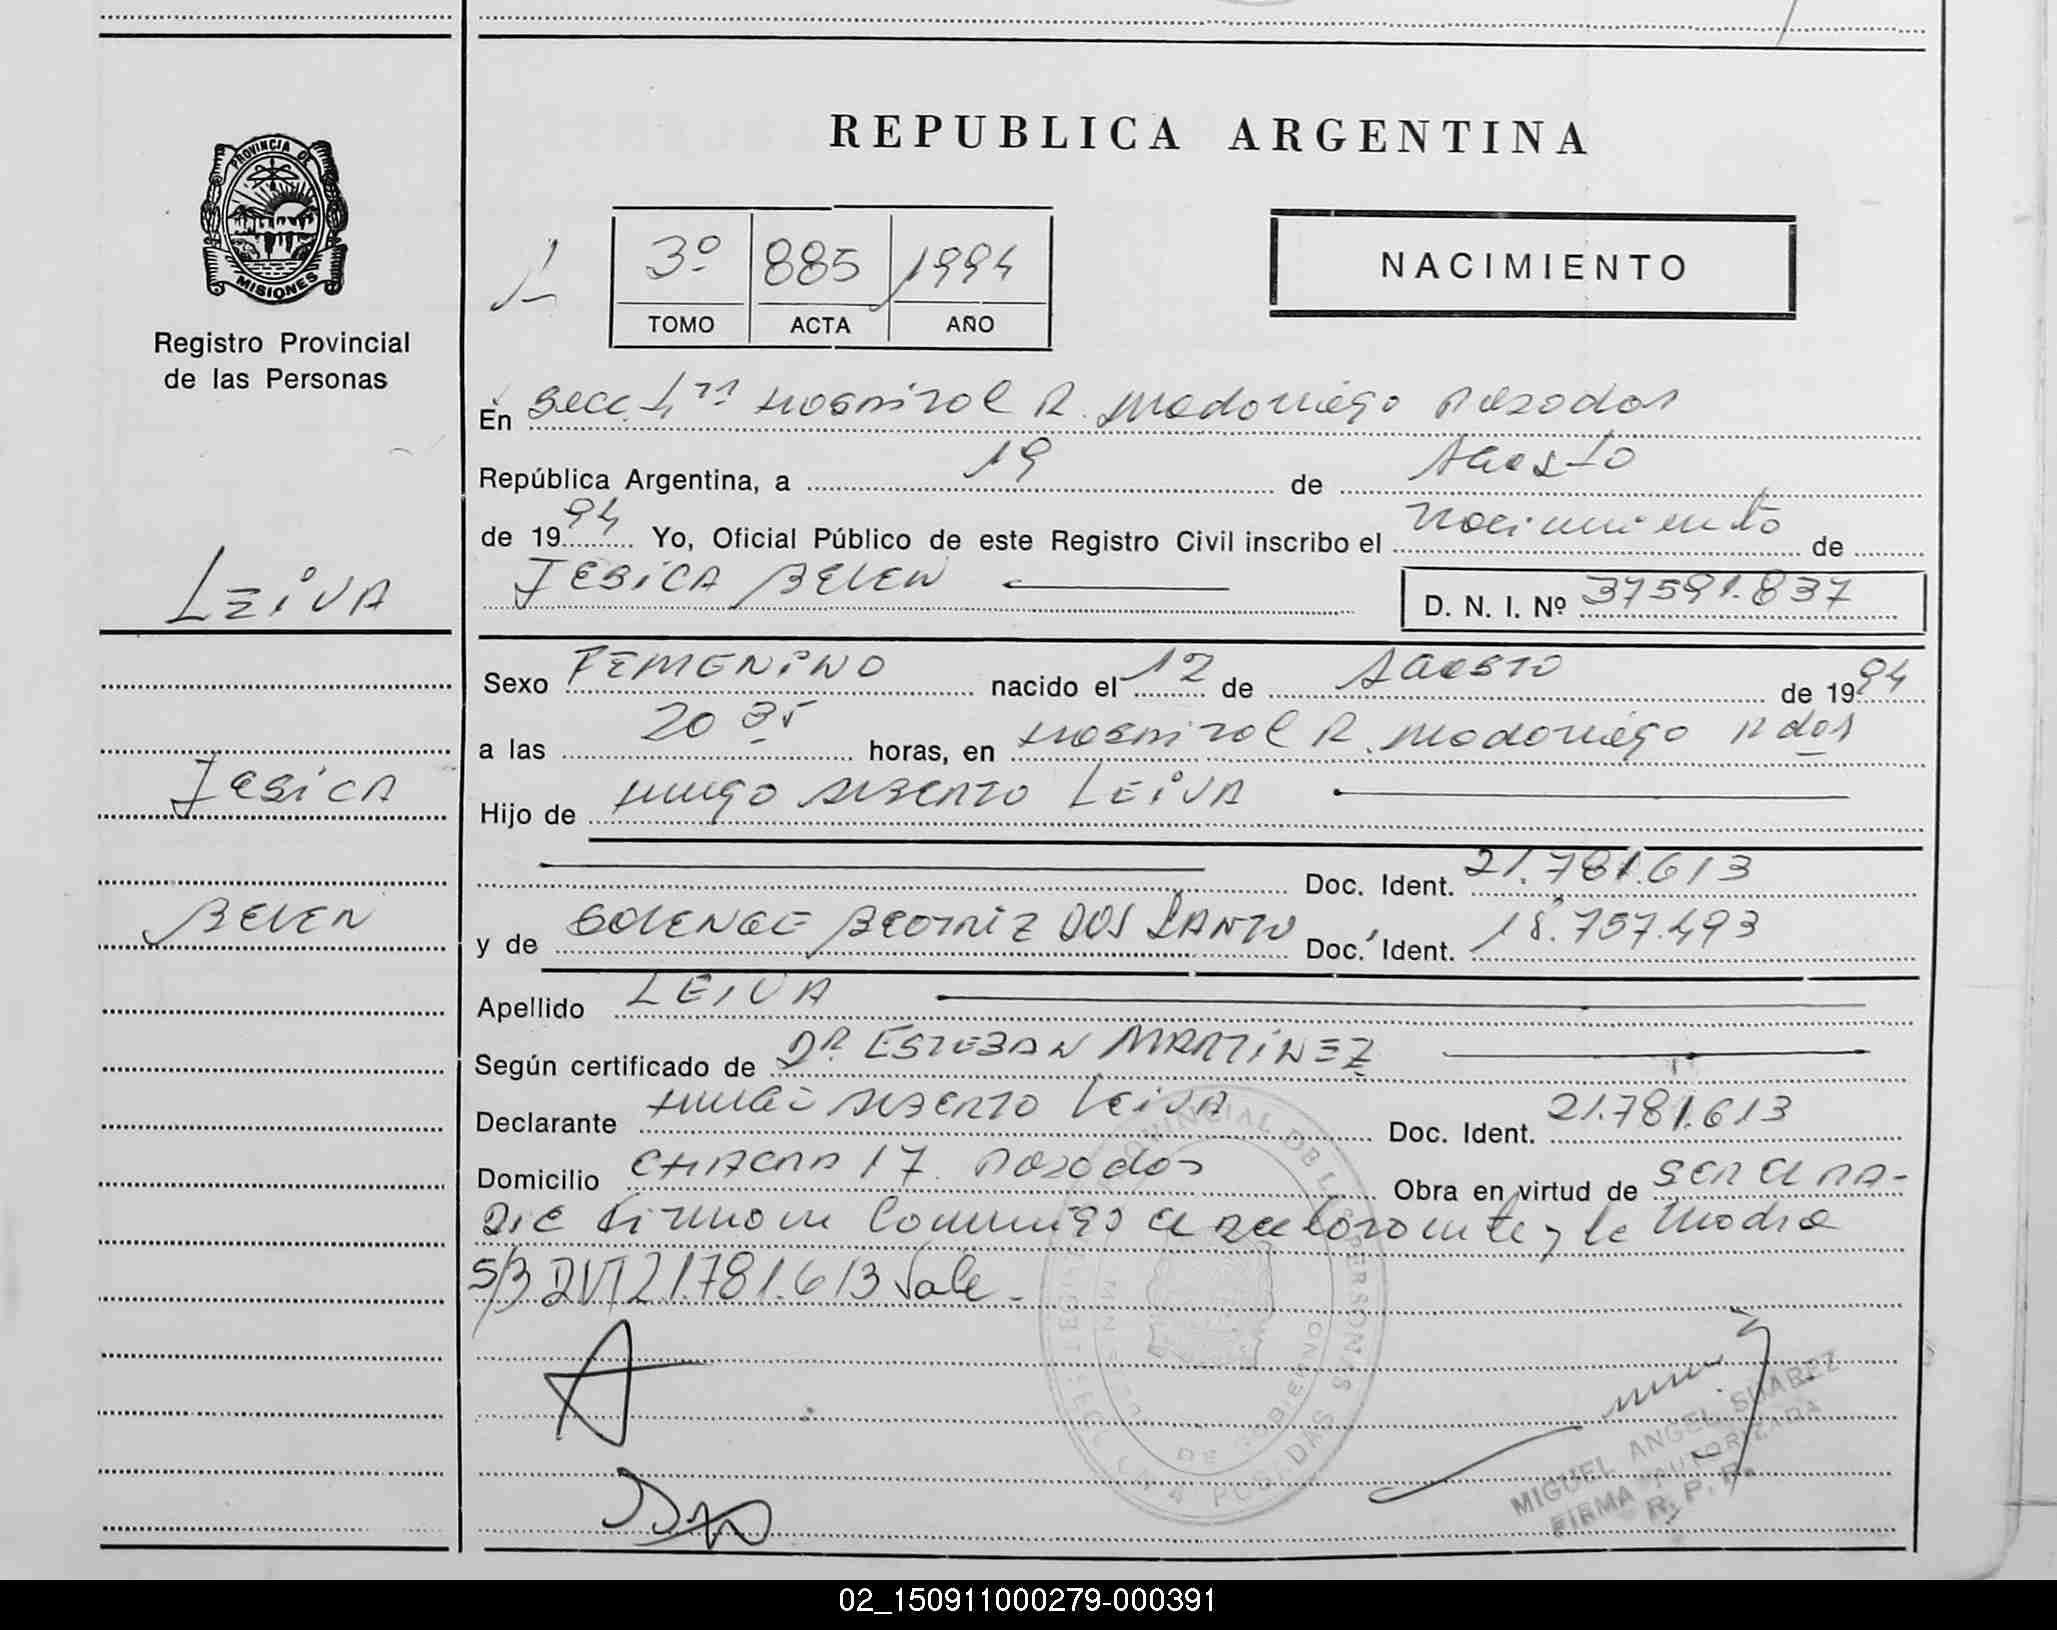 REPUBLICA ARGENTINA
PROVINCIA DE
MISIONES
Registro Provincial
de las Personas
3º 885 1994
TOMO ACTA AÑO
NACIMIENTO
En Secc. 1ra Hospital R. Madariaga Posadas
República Argentina, a 19 de Agosto
de 1994 Yo, Oficial Público de este Registro Civil inscribo el nacimiento de
JESICA BELEN
D. N. I. Nº 37591.837
LEIVA
JESICA
BELEN
Sexo FEMENINO nacido el 12 de AGOSTO de 1994
a las 20 35 horas, en Hospital R. Madariaga Pdas
Hijo de HUGO ALBERTO LEIVA
Doc. Ident. 21.781.613
y de BEATRIZ DOS SANTOS Doc. Ident. 18.757.493
Apellido LEIVA
Según certificado de DR ESTEBAN MARTINEZ
Declarante HUGO ALBERTO LEIVA Doc. Ident. 21.781.613
Domicilio CHACRA 17 Posadas Obra en virtud de SER EL PA-
DRE Firman Conmigo el declarante y la Madre
S/B DNI 21.781.613 Vale.
MIGUEL ANGEL SUAREZ
FIRMA AUTORIZADA
R. P. P.
02_150911000279-000391